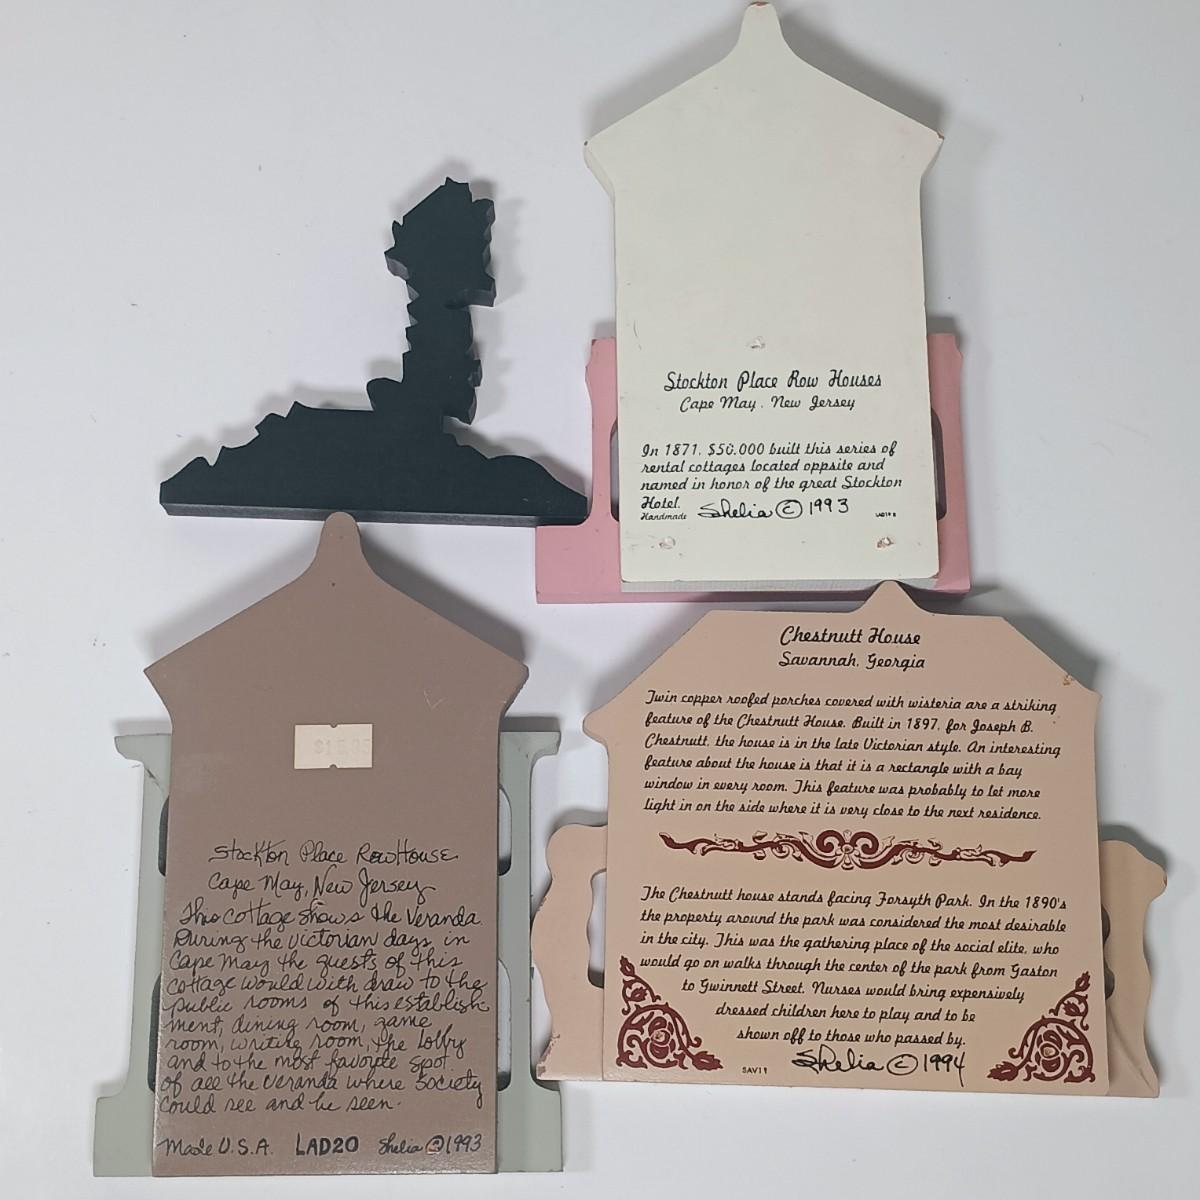 Stockton Place Row Houses
Cape May, New Jersey
In 1871, $50,000 built this series of
rental cottages located oppsite and
named in honor of the great Stockton
Hotel.
Handmade Shelia © 1993
$15.95
Stockton Place RowHouse
Cape May, New Jersey
This cottage shows the veranda.
During the victorian days in
Cape May the guests of this
cottage would with draw to the
public rooms of this establish-
ment, dining room, game
room, writing room, the lobby
and to the most favorite spot
of all the veranda where society
could see and be seen.
Made U.S.A. LAD20 Shelia © 1993
Chestnutt House
Savannah, Georgia
Twin copper roofed porches covered with wisteria are a striking
feature of the Chestnutt House. Built in 1897, for Joseph B.
Chestnutt, the house is in the late Victorian style. An interesting
feature about the house is that it is a rectangle with a bay
window in every room. This feature was probably to let more
light in on the side where it is very close to the next residence.
The Chestnutt house stands facing Forsyth Park. In the 1890's
the property around the park was considered the most desirable
in the city. This was the gathering place of the social elite, who
would go on walks through the center of the park from Gaston
to Gwinnett Street. Nurses would bring expensively
dressed children here to play and to be
shown off to those who passed by.
Shelia © 1994